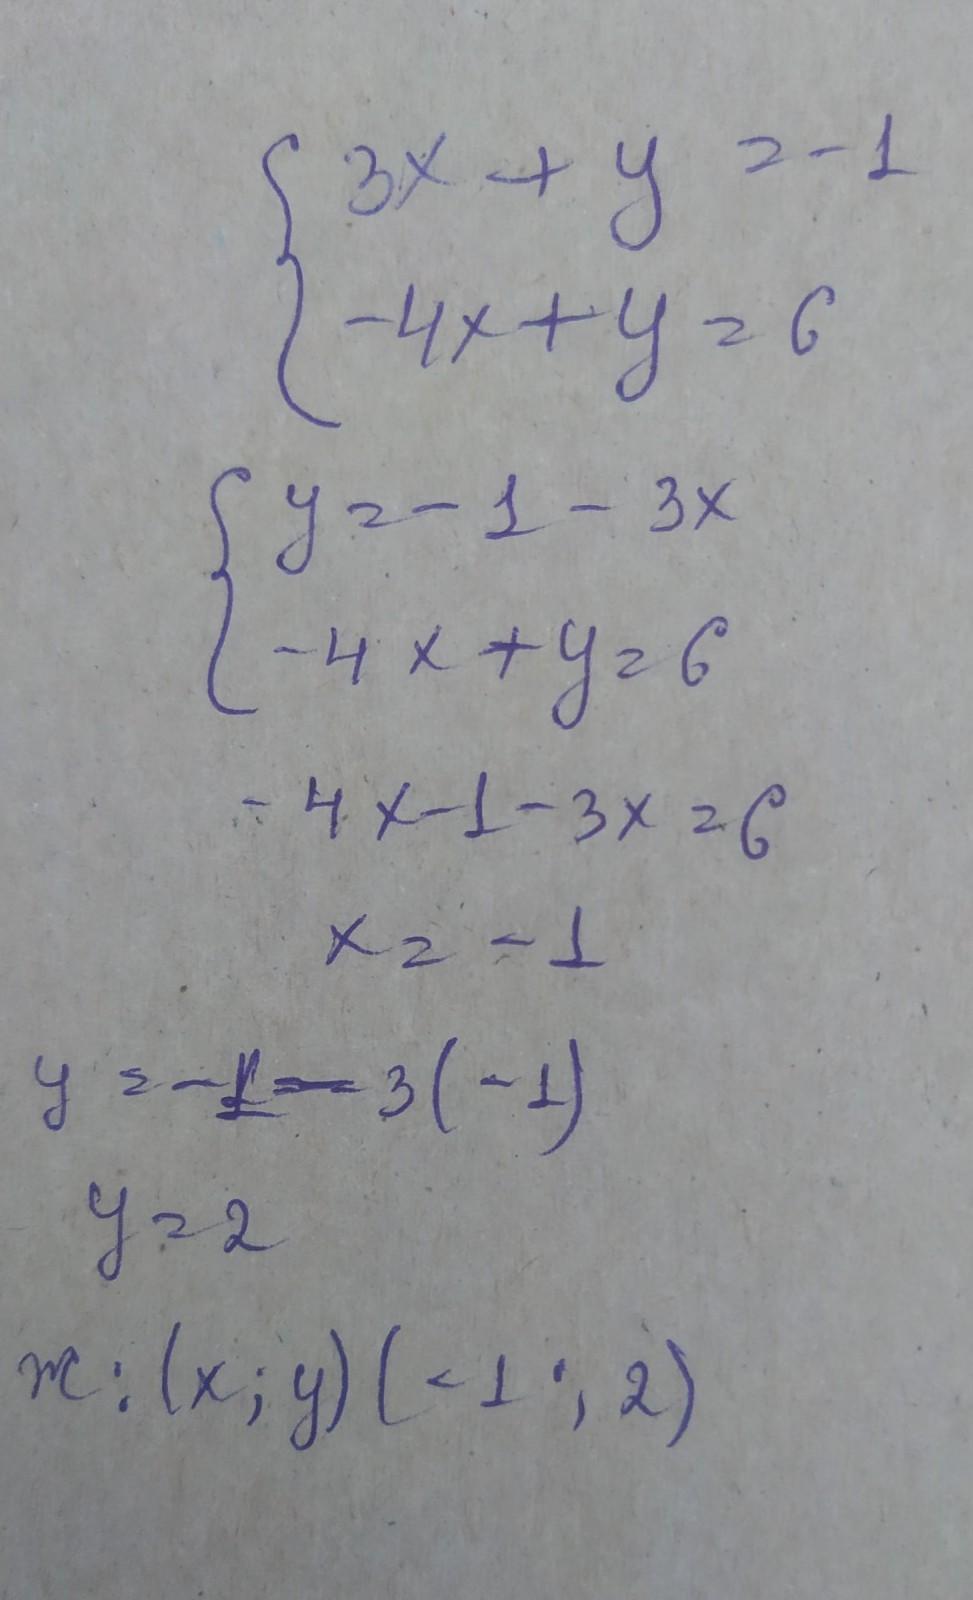 { 3x + y = -1
-4x + y = 6
{ y = -1 - 3x
-4x + y = 6
-4x - 1 - 3x = 6
x = -1
y = -1 - 3(-1)
y = 2
m: (x; y) (-1; 2)